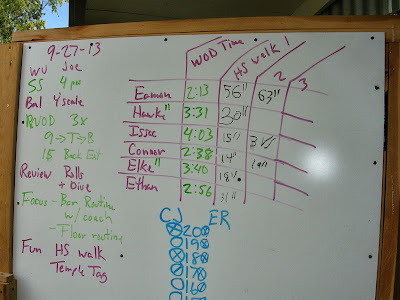 9-27-13
WU Joe
SS 4 pos
Bal 4 scale
RWOD 3x
9→T→B
15 Back Ext
Review Rolls
+ Dive
Focus - Bar Routine
w/ coach
- Floor routine
Fun HS walk
Temple Tag
WOD Time HS walk 1 2 3
Eamon 2:13 56" 63"
Hawke" 3:31 30"
Issac 4:03 15"
Connor 2:38 14"
Elke" 3:40 18"
Ethan 2:56 31"
CJ ER
20
19
18
17
16